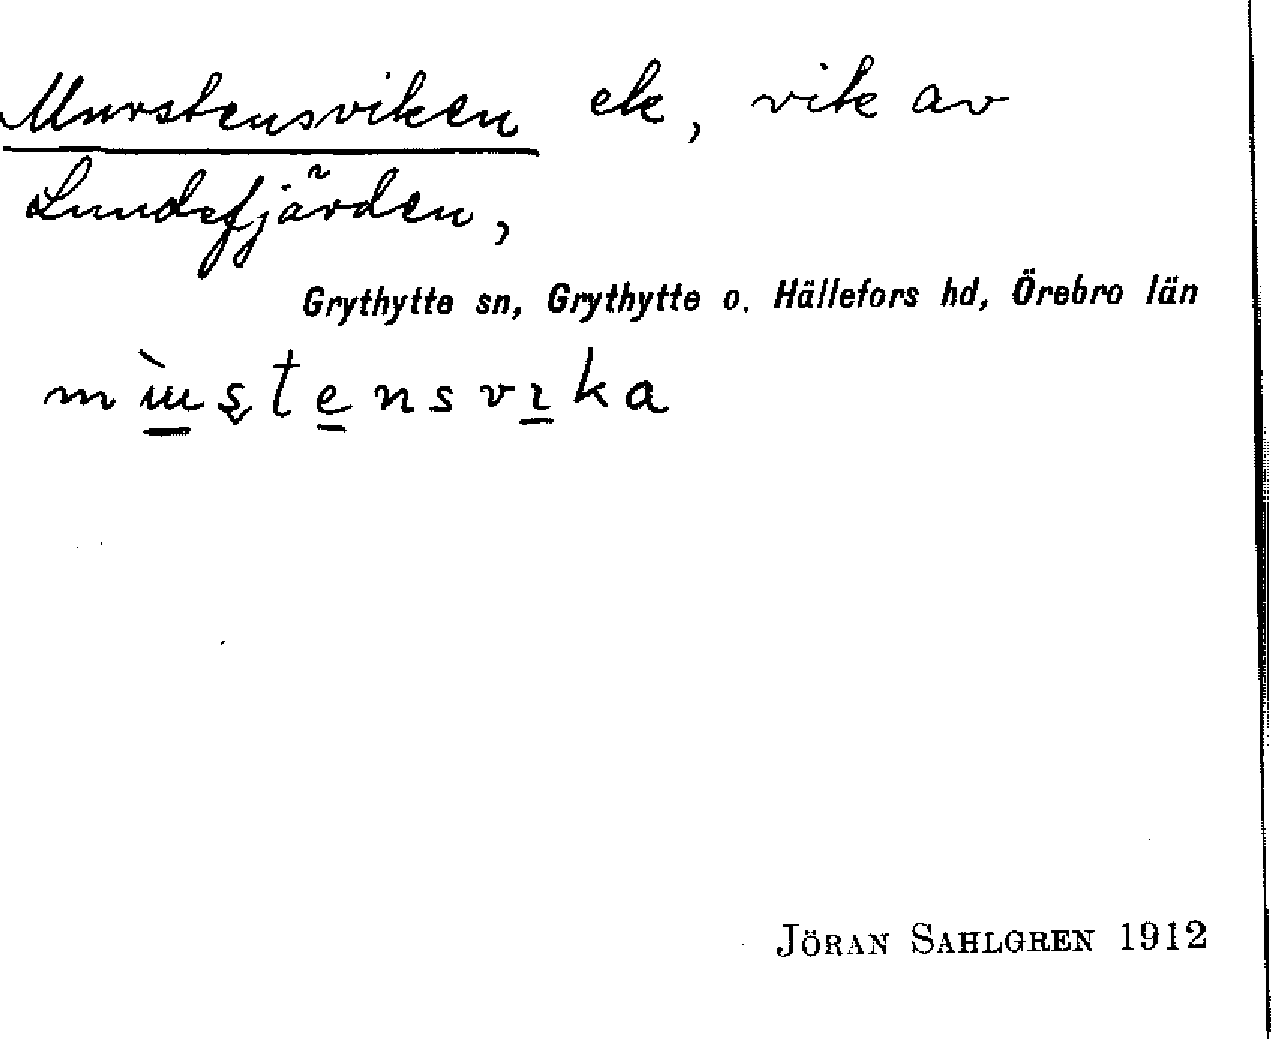 Murstensviken ek, vik av
Lundefjärden,
Grythytte sn, Grythytte o. Hällefors hd, Örebro län
JÖRAN SAHLGREN 1912